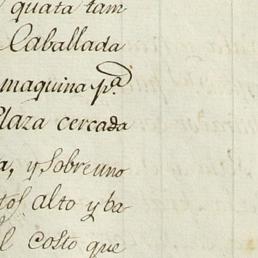 quata tam
Caballada
maquina p.ª
Plaza cercada
a, y sobre uno
tos alto y ba
l costo que